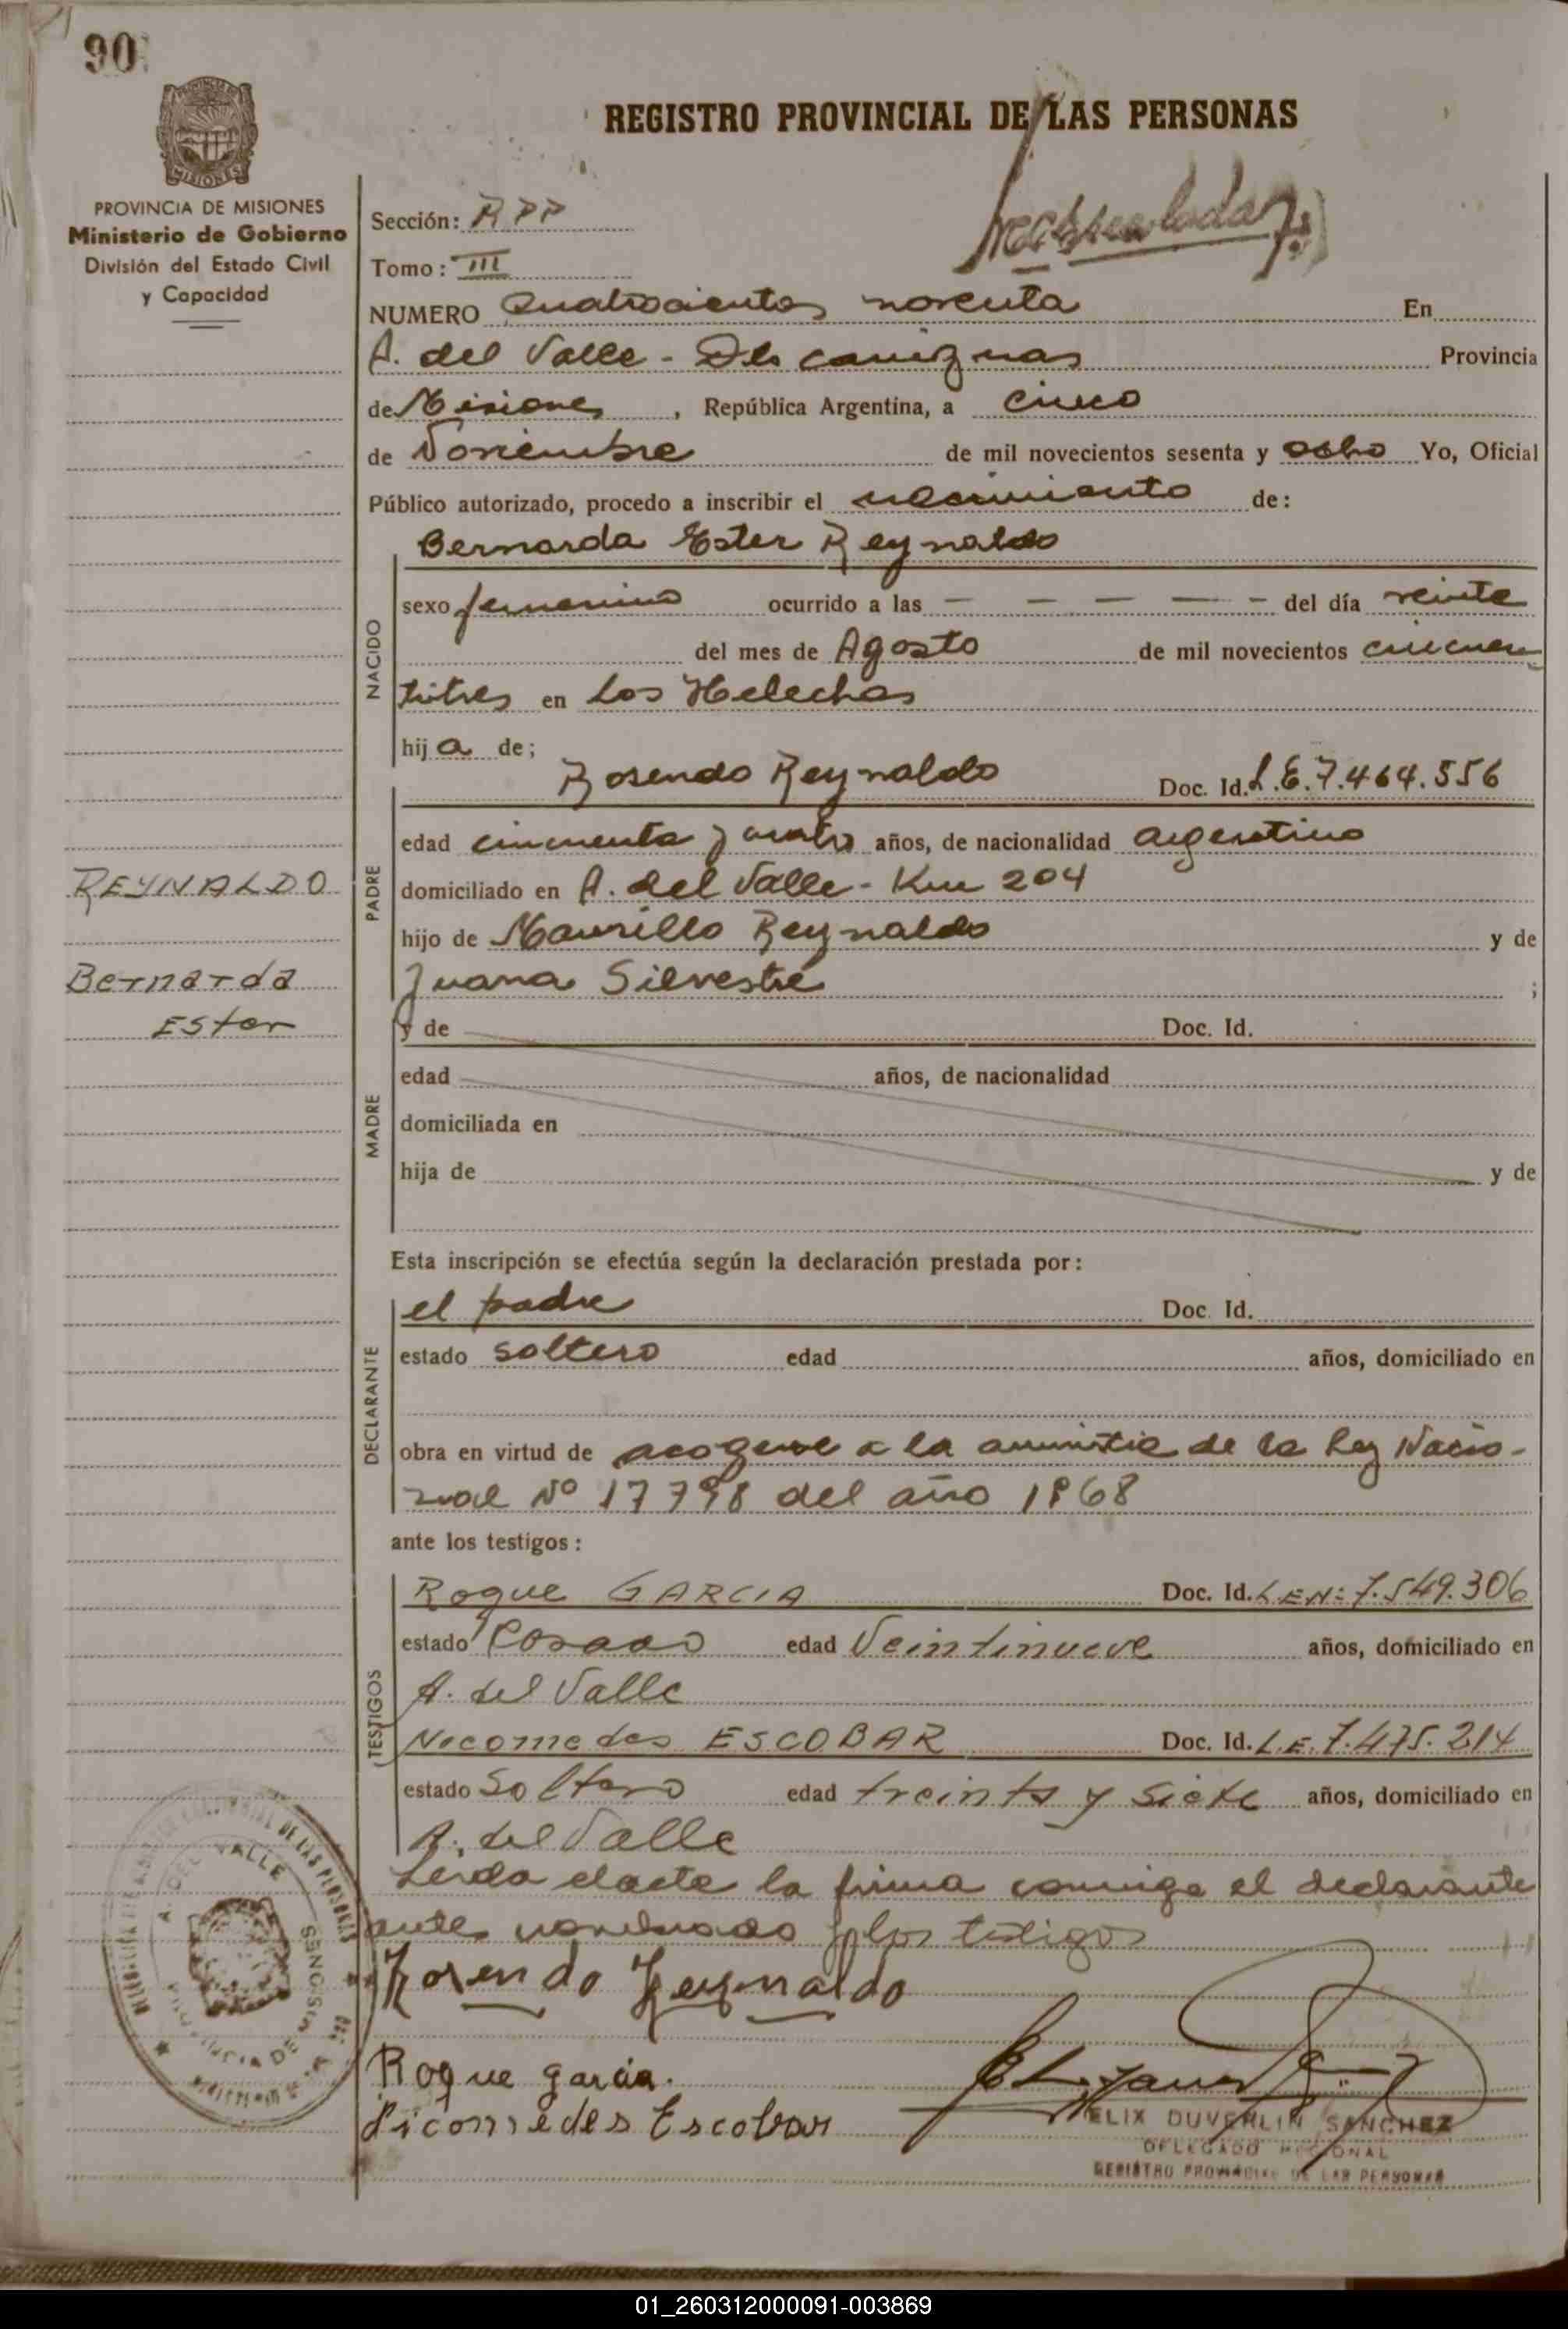 90
REGISTRO PROVINCIAL DE LAS PERSONAS
PROVINCIA DE MISIONES
Ministerio de Gobierno
División del Estado Civil
y Capacidad
Sección: RPP
Tomo: III
NUMERO Cuatrocientos noventa En
A. del Valle - Dto Cainguas Provincia
de Misiones, República Argentina, a cinco
de Noviembre de mil novecientos sesenta y ocho Yo, Oficial
Público autorizado, procedo a inscribir el nacimiento de:
Bernarda Ester Reynaldo
NACIDO
sexo femenino ocurrido a las — — — — — del día veinte
del mes de Agosto de mil novecientos cincuen
titres en Los Helechos
hija de;
Rosendo Reynaldo Doc. Id. L.E. 7.464.556
PADRE
edad cincuenta y cuatro años, de nacionalidad argentino
REYNALDO
domiciliado en A. del Valle - Km 204
hijo de Maurillo Reynaldo y de
Bernarda
Juana Silvestre ;
Ester
y de Doc. Id.
MADRE
edad años, de nacionalidad
domiciliada en
hija de y de
Esta inscripción se efectúa según la declaración prestada por:
el padre Doc. Id.
DECLARANTE
estado soltero edad años, domiciliado en
obra en virtud de acogerse a la amnistia de la Ley Nacio-
nal Nº 17798 del año 1968
ante los testigos:
TESTIGOS
Roque GARCIA Doc. Id. L.E.Nº 7.549.306
estado Casado edad Veintinueve años, domiciliado en
A. del Valle
Nocomedes ESCOBAR Doc. Id. L.E. 7.475.214
estado Soltero edad treinta y siete años, domiciliado en
A. del Valle
Leida el acta la firma conmigo el declarante
antes nombrado y los testigos
Rosendo Reynaldo
Roque garcia.
Nicomedes Escobar
A. DEL VALLE
FELIX DUVERLIN SANCHEZ
DELEGADO REGIONAL
REGISTRO PROVINCIAL DE LAS PERSONAS
01_260312000091-003869